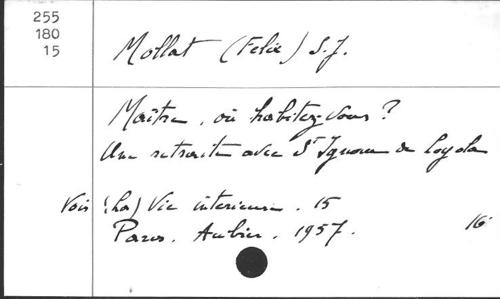 255
180
15
Mollat (Felix) S.J.
Maître, où habitez-vous ?
Une retraite avec St Ignace de Loyola
Vois (ha) Vie intérieure. 15
Paris. Aubier. 1957. 16°